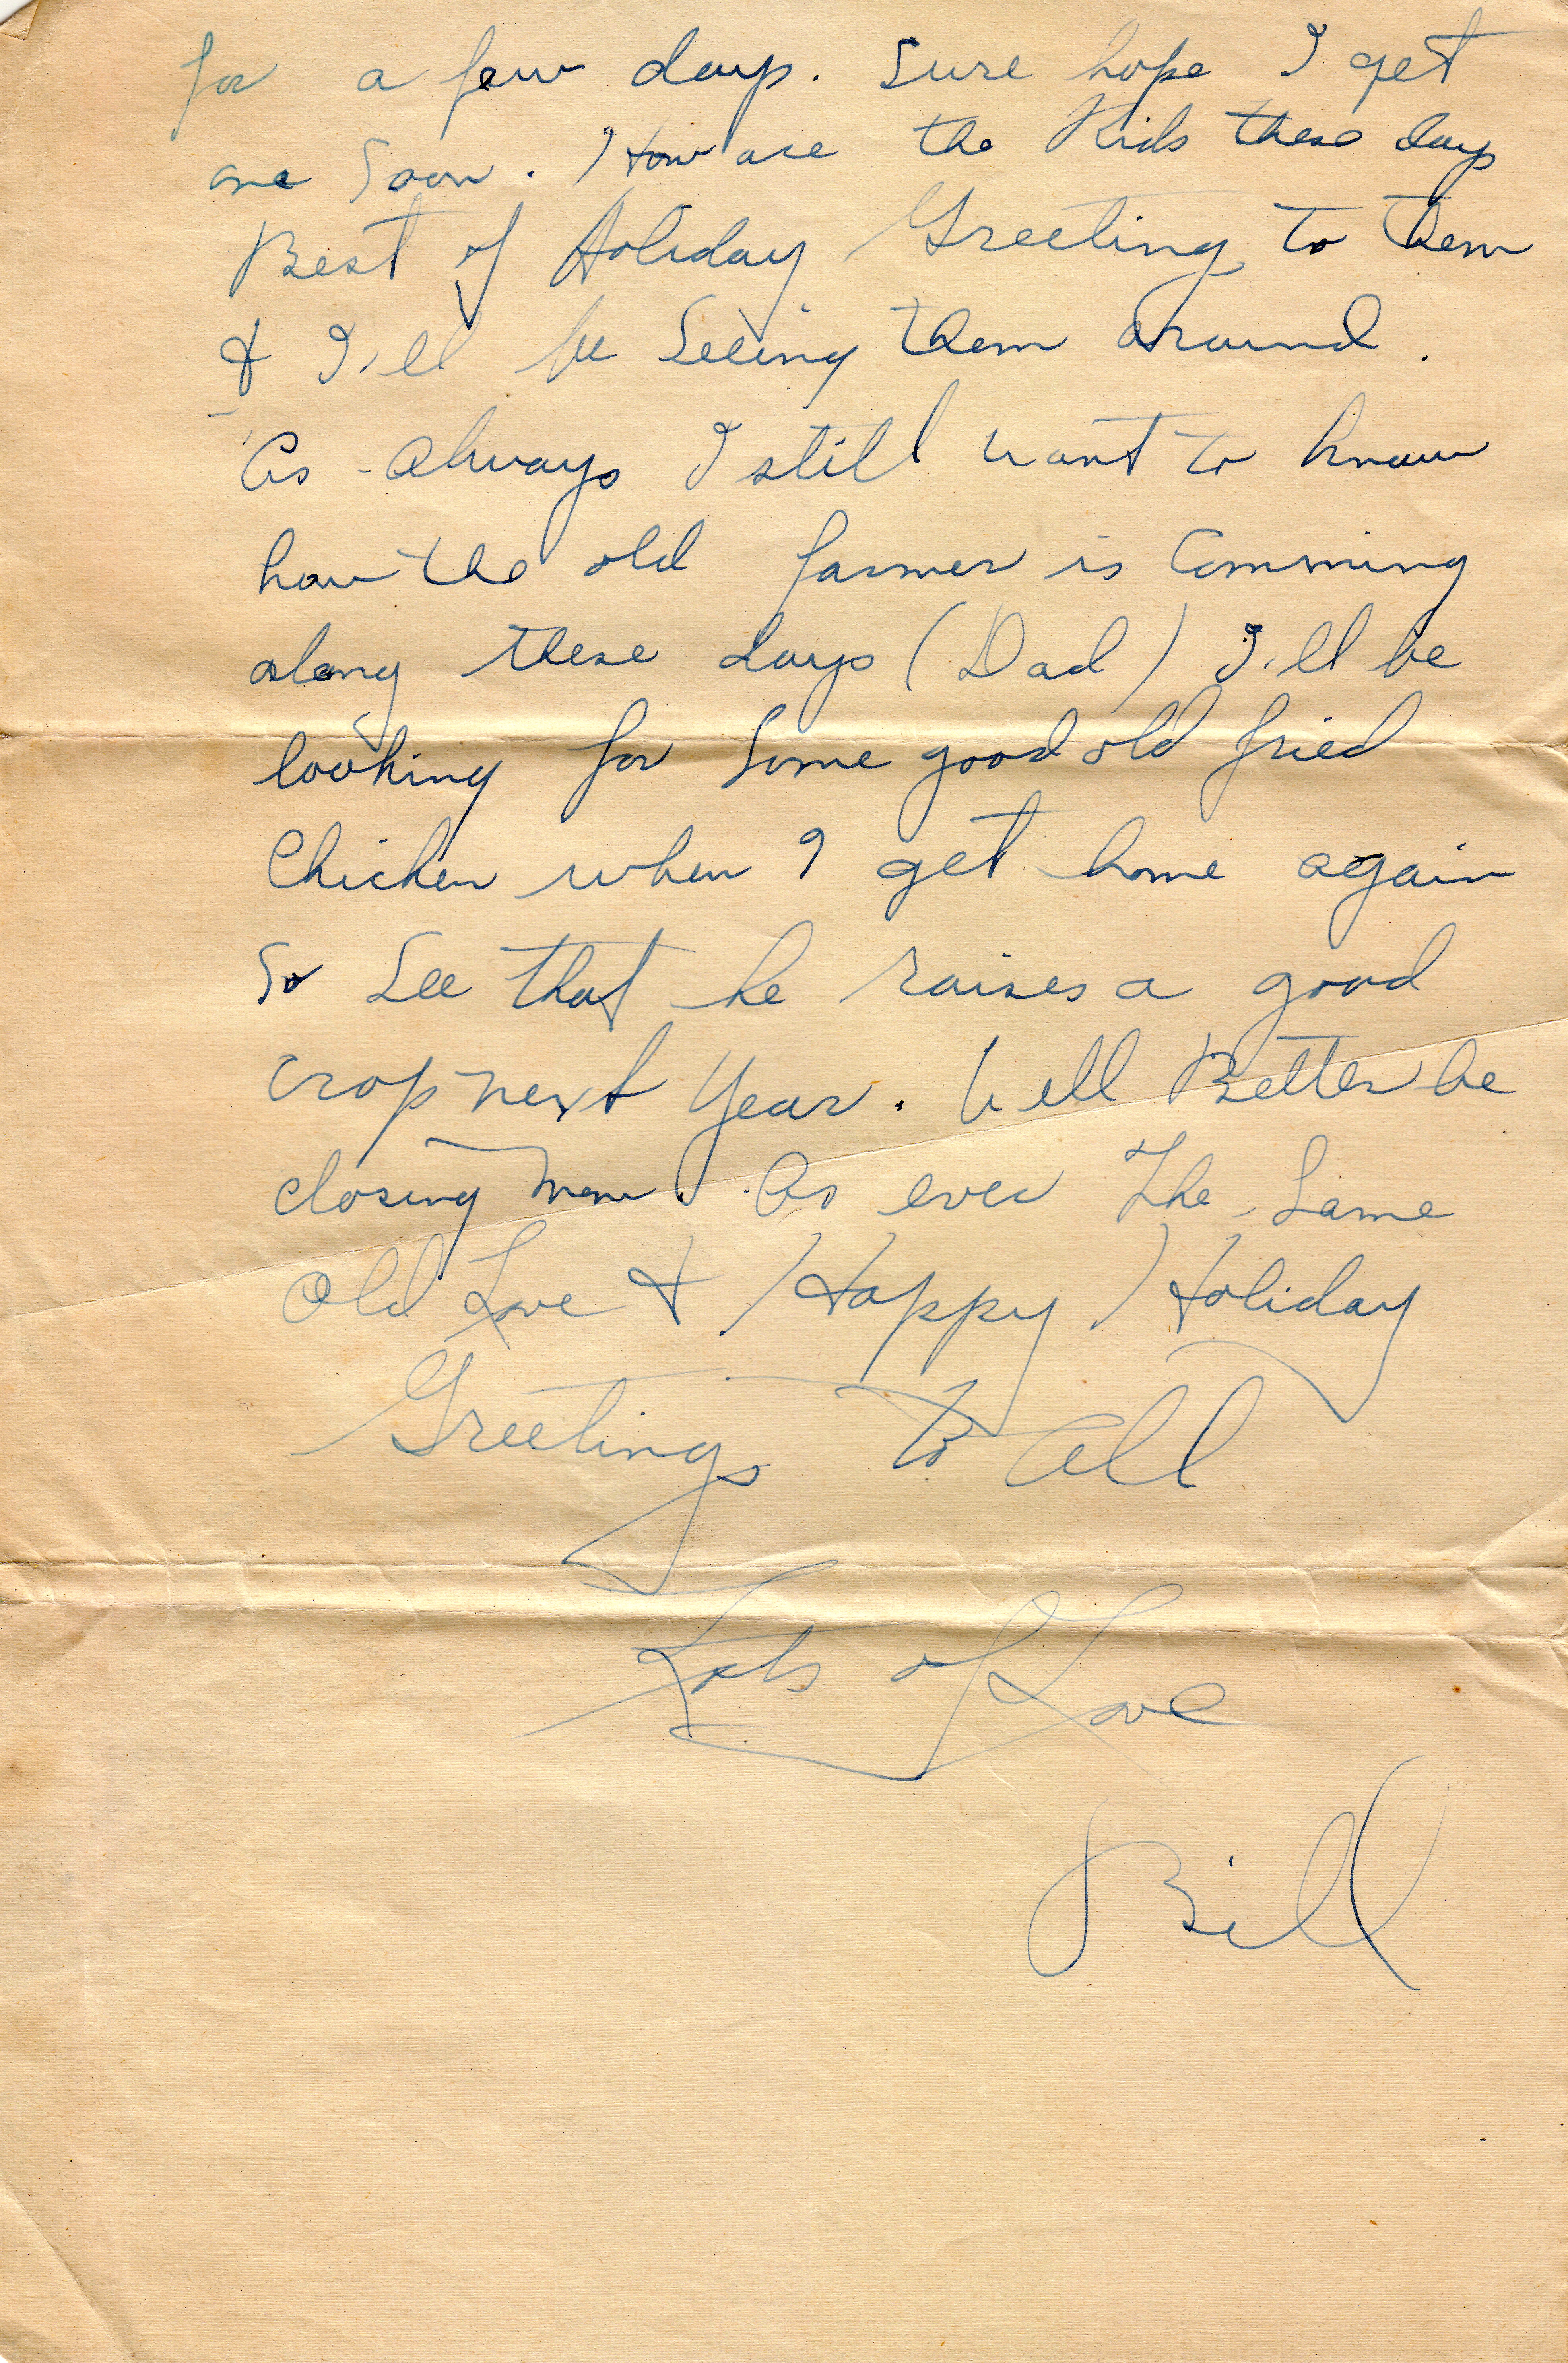 for a few days. Sure hope I get
one Soon. How are the Kids these days
Best of Holiday Greeting to them
& I'll be Seeing them around.
As Always I still want to know
how the old farmer is Comming
along these days (Dad) I'll be
looking for Some good old fried
Chicken when I get home again
So See that he raises a good
crop next Year. Well Better be
closing now. As ever The Same
Old Love & Happy Holiday
Greetings To All
Lots of Love
Bill